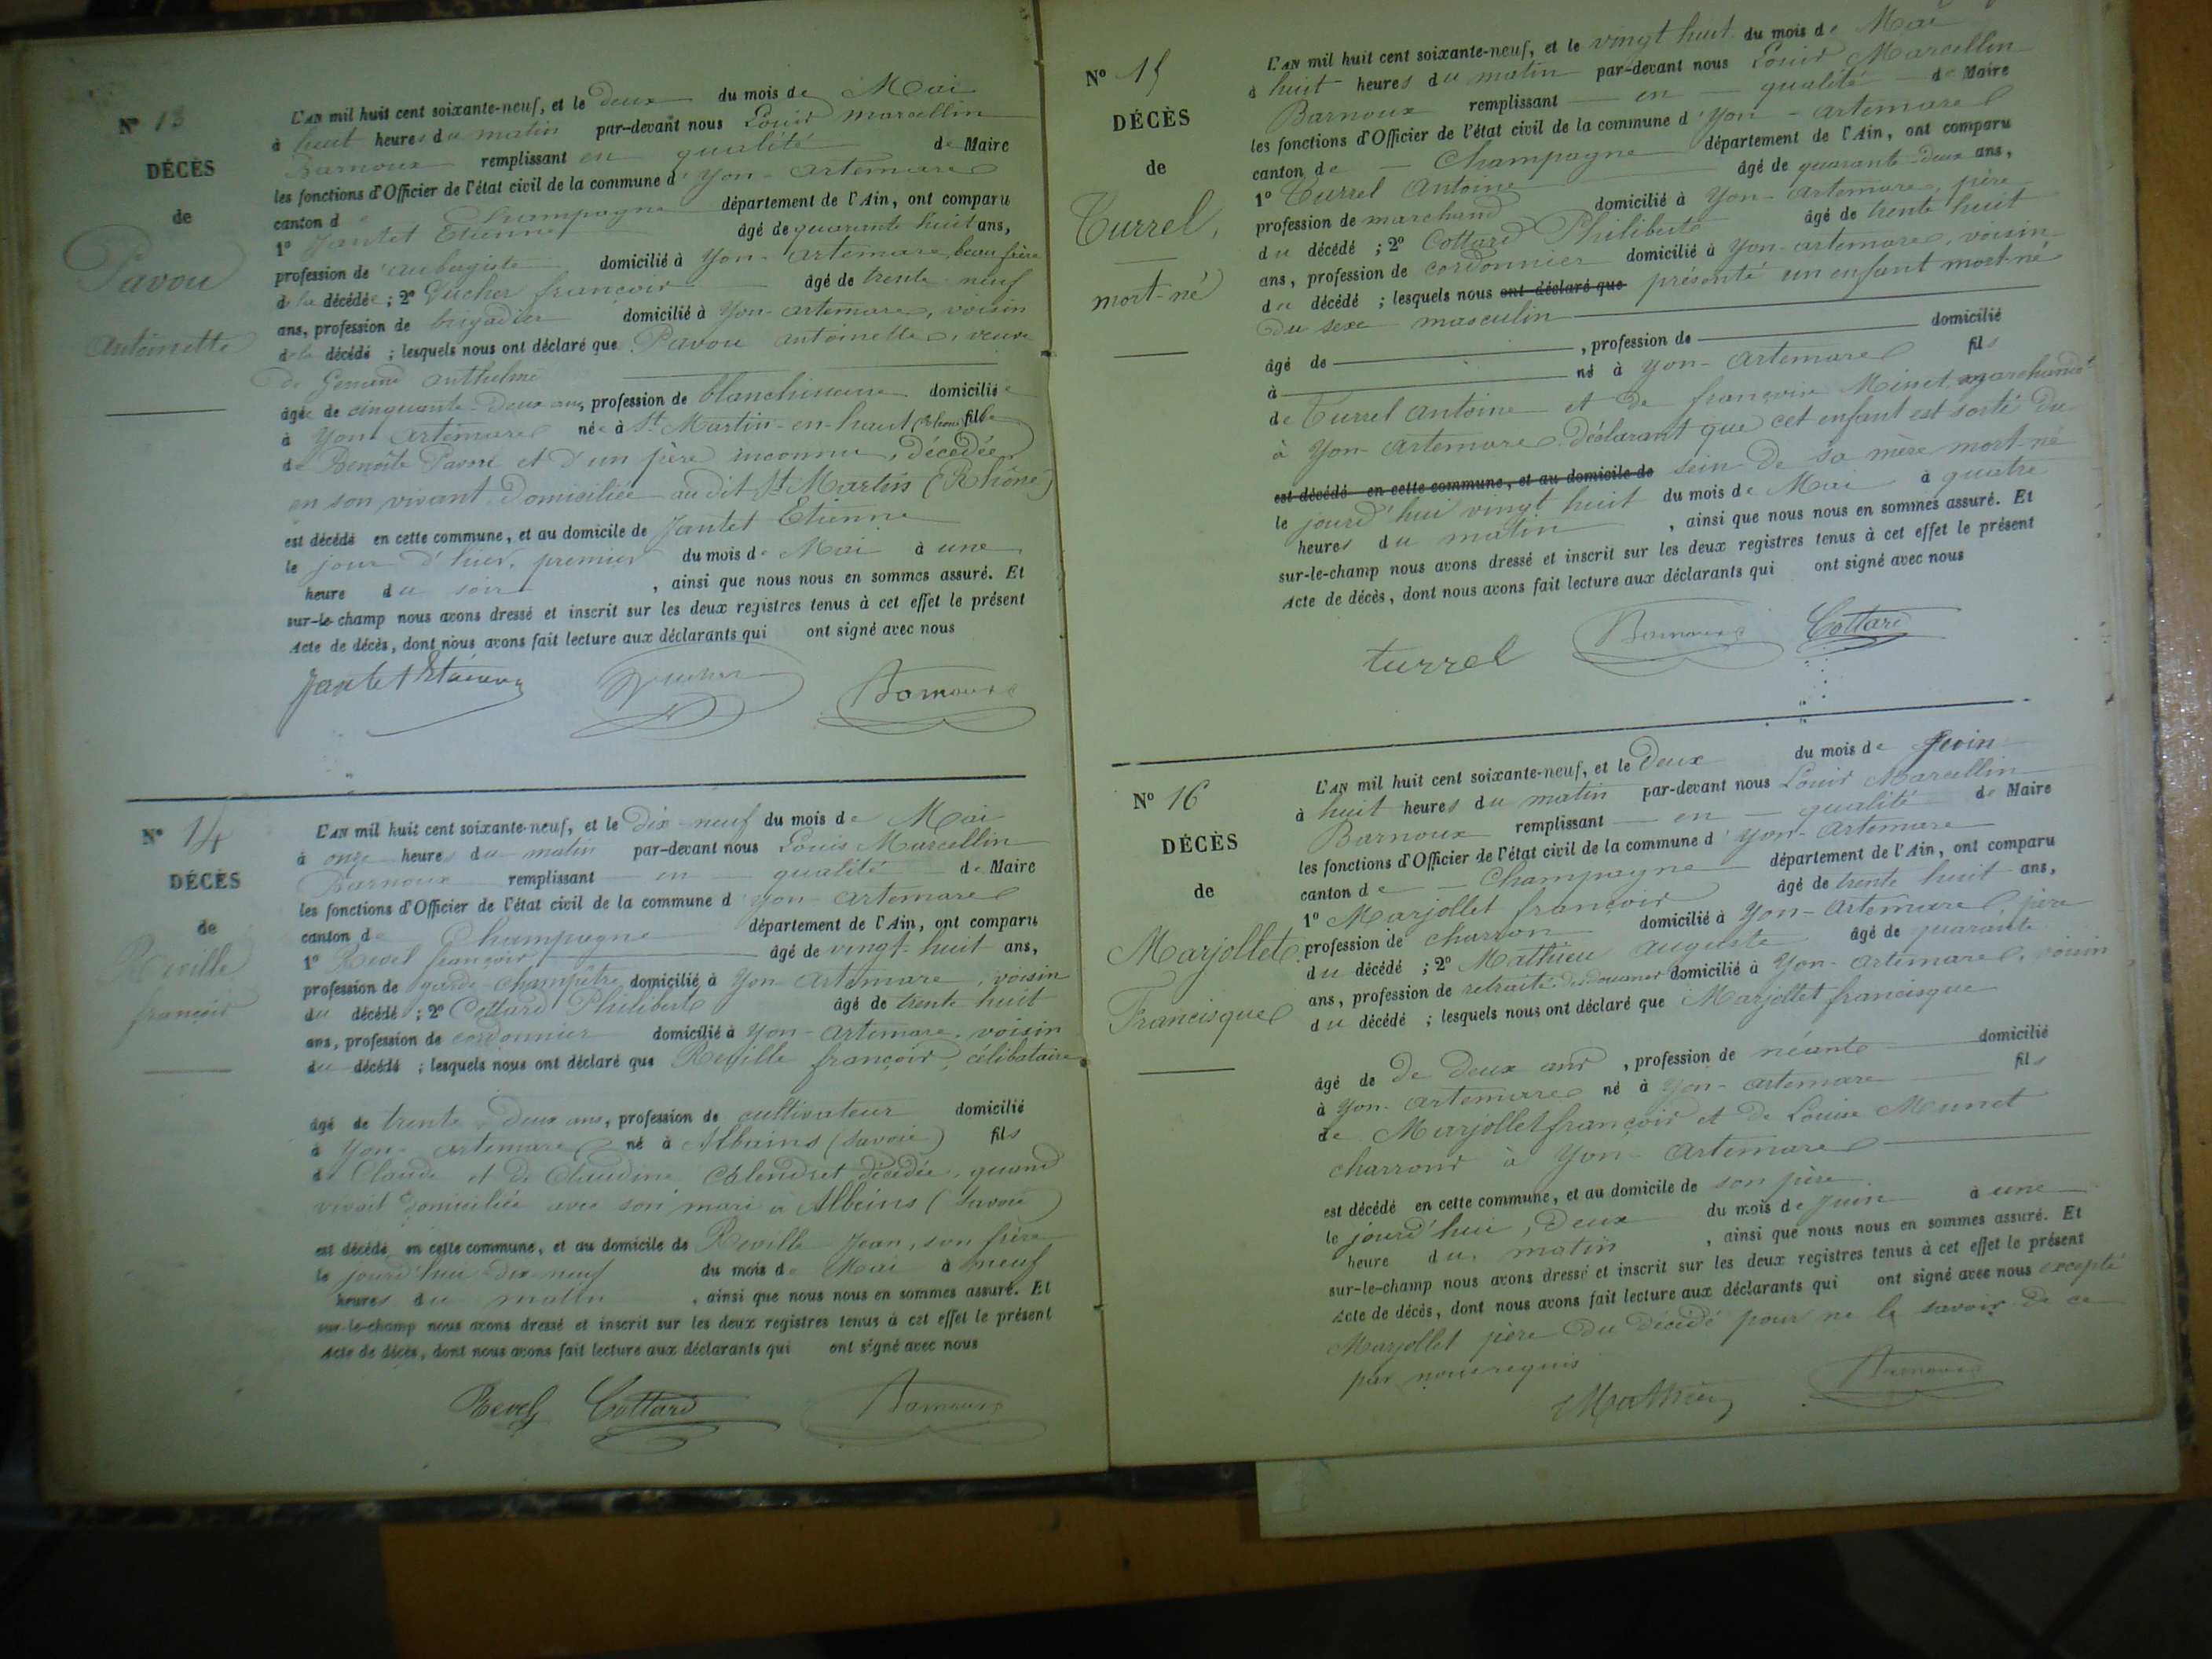 N° 13
DÉCÈS
de
Pavou
Antoinette
L'AN mil huit cent soixante-neuf, et le deux du mois de Mai
à huit heures du matin par-devant nous Louis marcellin
Barnoux remplissant en qualité de Maire
les fonctions d'Officier de l'état civil de la commune d'Yon-Artemare
canton d Champagne département de l'Ain, ont comparu
1° Jantet Etienne âgé de quarante huit ans,
profession de aubergiste domicilié à Yon-artemare, beau frère
de la décédée ; 2° Ducher françois âgé de trente-neuf
ans, profession de brigadier domicilié à Yon-artemare, voisin
de la décédé ; lesquels nous ont déclaré que Pavou antoinette, veuve
de anthelme
âgée de cinquante-deux ans, profession de blanchisseuse domiciliée
à Yon-artemare née à St Martin-en-haut (Rhône) fille
de Benoîte Pavou et d'un père inconnu, décédée
en son vivant domiciliée audit St Martin (Rhône)
est décédé en cette commune, et au domicile de Jantet Etienne
le jour d'hier, premier du mois de Mai à une
heure du soir , ainsi que nous nous en sommes assuré. Et
sur-le-champ nous avons dressé et inscrit sur les deux registres tenus à cet effet le présent
Acte de décès, dont nous avons fait lecture aux déclarants qui ont signé avec nous
Jantet Etienne Ducher Barnoux
N° 14
DÉCÈS
de
Reville
françois
L'AN mil huit cent soixante-neuf, et le dix-neuf du mois de Mai
à onze heures du matin par-devant nous Louis Marcellin
Barnoux remplissant en qualité de Maire
les fonctions d'Officier de l'état civil de la commune d'Yon-Artemare
canton de Champagne département de l'Ain, ont comparu
1° Revel françois âgé de vingt-huit ans,
profession de garde-champêtre domicilié à Yon-Artemare, voisin
du décédé ; 2° Cottard Philibert âgé de trente huit
ans, profession de cordonnier domicilié à Yon-Artemare, voisin
du décédé ; lesquels nous ont déclaré que Reville françois, célibataire
âgé de trente-deux ans, profession de cultivateur domicilié
à Yon-artemare né à Albeins (Savoie) fils
de Claude et de Claudine décédée, quand
vivait domiciliée avec son mari à Albeins (Savoie)
est décédé en cette commune, et au domicile de Reville Jean, son frère
le jourd'hui dix neuf du mois de Mai à neuf
heures du matin , ainsi que nous nous en sommes assuré. Et
sur-le-champ nous avons dressé et inscrit sur les deux registres tenus à cet effet le présent
Acte de décès, dont nous avons fait lecture aux déclarants qui ont signé avec nous
Revel Cottard Barnoux
N° 15
DÉCÈS
de
Turrel,
mort-né
L'AN mil huit cent soixante-neuf, et le vingt huit du mois de Mai
à huit heures du matin par-devant nous Louis Marcellin
Barnoux remplissant en qualité de Maire
les fonctions d'Officier de l'état civil de la commune d'Yon-artemare
canton de Champagne département de l'Ain, ont comparu
1° Turrel Antoine âgé de quarante-deux ans,
profession de marchand domicilié à Yon-Artemare, père
du décédé ; 2° Cottard Philibert âgé de trente huit
ans, profession de cordonnier domicilié à Yon-artemare, voisin
du décédé ; lesquels nous ont déclaré que présenté un enfant mort-né
du sexe masculin
âgé de , profession de domicilié
à né à Yon-Artemare fils
de Turrel Antoine et de françoise Minet, marchands
à Yon-Artemare déclarant que cet enfant est sorti du
est décédé en cette commune, et au domicile de sein de sa mère mort-né
le jourd'hui vingt huit du mois de Mai à quatre
heures du matin , ainsi que nous nous en sommes assuré. Et
sur-le-champ nous avons dressé et inscrit sur les deux registres tenus à cet effet le présent
Acte de décès, dont nous avons fait lecture aux déclarants qui ont signé avec nous
turrel Barnoux Cottard
N° 16
DÉCÈS
de
Marjollet
Francisque
L'AN mil huit cent soixante-neuf, et le Deux du mois de Juin
à huit heures du matin par-devant nous Louis Marcellin
Barnoux remplissant en qualité de Maire
les fonctions d'Officier de l'état civil de la commune d'Yon-Artemare
canton de Champagne département de l'Ain, ont comparu
1° Marjollet françois âgé de trente huit ans,
profession de charron domicilié à Yon-Artemare, père
du décédé ; 2° Mathieu auguste âgé de quarante
ans, profession de retraité des douanes domicilié à Yon-Artemare, voisin
du décédé ; lesquels nous ont déclaré que Marjollet francisque
âgé de de deux ans , profession de néante domicilié
à Yon-Artemare né à Yon-artemare fils
de Marjollet françois et de Louise Munet
charrons à Yon-Artemare
est décédé en cette commune, et au domicile de son père
le jourd'hui, deux du mois de Juin à une
heure du matin , ainsi que nous nous en sommes assuré. Et
sur-le-champ nous avons dressé et inscrit sur les deux registres tenus à cet effet le présent
Acte de décès, dont nous avons fait lecture aux déclarants qui ont signé avec nous excepté
Marjollet père du décédé pour ne le savoir de ce
par nous requis
Mathieu Barnoux